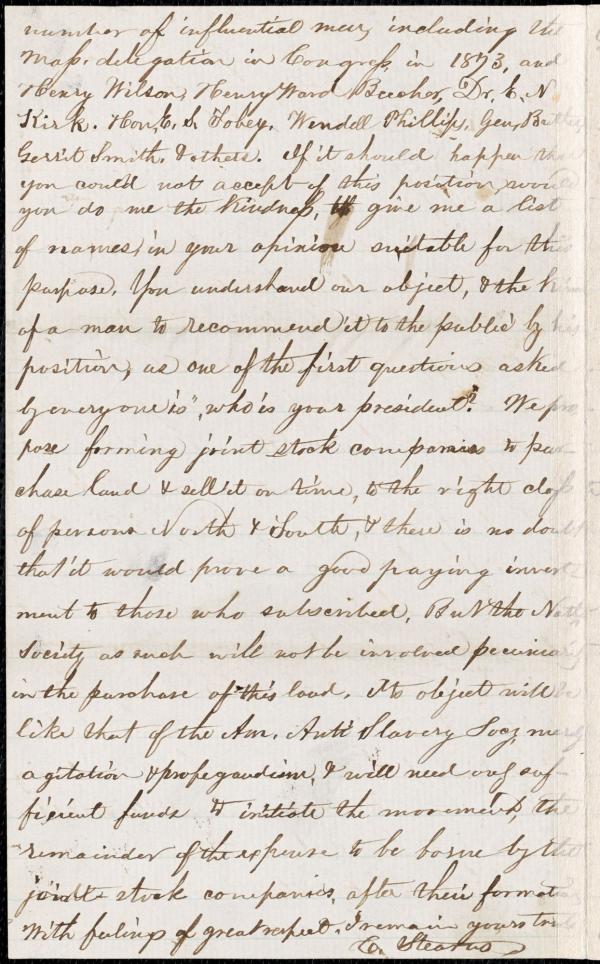 number of influential men, including the
Mass. delegation in Congress in 1873, and
Henry Wilson, Henry Ward Beecher, Dr. E. N.
Kirk. Hon. E. S. Tobey, Wendell Phillips, Gen. Butler,
Gerrit Smith, & others. If it should happen that
you could not accept of this position, would
you do me the kindness, to give me a list
of names, in your opinion suitable for this
purpose. You understand our object, & the kind
of a man to recommend it to the public by his
position, as one of the first questions asked
by everyone is, "who is your president"? We pro-
pose forming joint stock companies to pur-
chase land & sell it on time, to the right class
of persons North & South, & there is no doubt
that it would prove a good paying invest-
ment to those who subscribed. But the Nat.
Society as such will not be involved pecuniarily
in the purchase of this land. Its object will be
like that of the Am. Anti Slavery Socy, merely
agitation & propegandism, & will need only suf-
ficient funds to initiate the movement, the
remainder of the expense to be borne by the
joint stock companies, after their formation
With feelings of great respect. I remain yours truly
E. Stearns